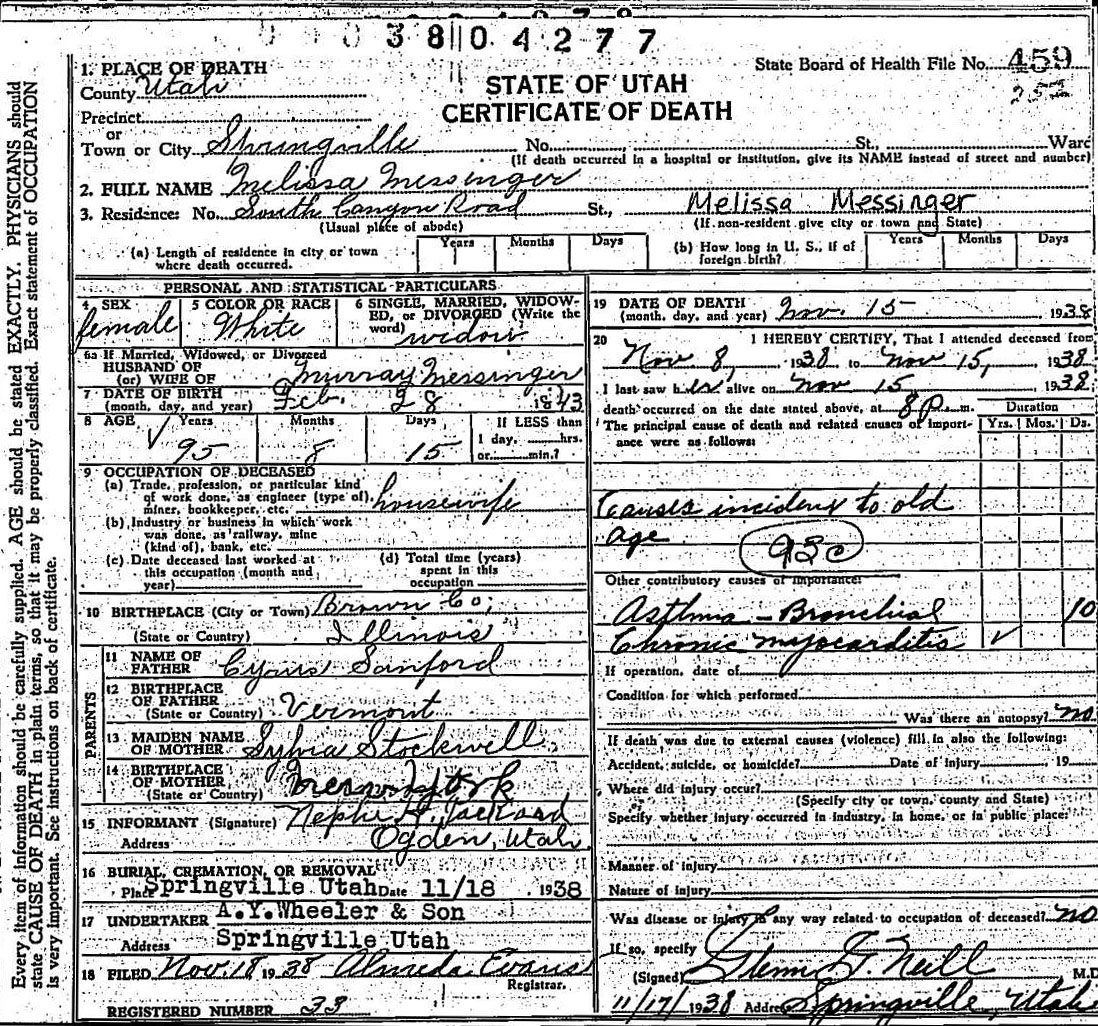 38 04277
State Board of Health File No. 459
STATE OF UTAH
CERTIFICATE OF DEATH
1. PLACE OF DEATH
County Utah
Precinct
or
Town or City Springville No. St., Ward
(If death occurred in a hospital or institution, give its NAME instead of street and number)
2. FULL NAME Melissa Messinger
3. Residence: No. South Canyon Road St., Melissa Messinger
(Usual place of abode) (If non-resident give city or town and State)
(a) Length of residence in city or town where death occurred. Years Months Days
(b) How long in U. S., if of foreign birth? Years Months Days
PERSONAL AND STATISTICAL PARTICULARS
4 SEX female
5 COLOR OR RACE White
6 SINGLE, MARRIED, WIDOWED, or DIVORCED (Write the word) widow
6a If Married, Widowed, or Divorced
HUSBAND OF
(or) WIFE OF Murray Messinger
7 DATE OF BIRTH
(month, day, and year) Feb. 28 1843
8 AGE Years Months Days If LESS than
95 8 15 1 day, hrs.
or min.?
9 OCCUPATION OF DECEASED
(a) Trade, profession, or particular kind
of work done, as engineer (type of),
miner, bookkeeper, etc. housewife
(b) Industry or business in which work
was done, as railway, mine
(kind of), bank, etc.
(c) Date deceased last worked at
this occupation (month and
year)
(d) Total time (years)
spent in this
occupation
10 BIRTHPLACE (City or Town) Brown Co;
(State or Country) Illinois
PARENTS
11 NAME OF
FATHER Cyrus Sanford
12 BIRTHPLACE
OF FATHER
(State or Country) Vermont
13 MAIDEN NAME
OF MOTHER Sylvia Stockwell
14 BIRTHPLACE
OF MOTHER
(State or Country) New York
15 INFORMANT (Signature) Nephi Packard
Address Ogden, Utah
16 BURIAL, CREMATION, OR REMOVAL
Place Springville Utah Date 11/18, 1938
17 UNDERTAKER A.Y.Wheeler & Son
Address Springville Utah
18 FILED Nov. 18 1938 Almeda Evans
Registrar.
REGISTERED NUMBER 33
19 DATE OF DEATH
(month, day, and year) Nov. 15 1938
20 I HEREBY CERTIFY, That I attended deceased from
Nov 8, 1938 to Nov 15, 1938
I last saw her alive on Nov 15 1938
death occurred on the date stated above, at 8 p.m. Duration
The principal cause of death and related causes of importance were as follows: Yrs. Mos. Ds.
Causes incident to old
age
93c
Other contributory causes of importance:
Asthma - Bronchial 10
Chronic myocarditis ✓
If operation, date of
Condition for which performed
Was there an autopsy? no
If death was due to external causes (violence) fill in also the following:
Accident, suicide, or homicide? Date of injury 19
Where did injury occur?
(Specify city or town, county and State)
Specify whether injury occurred in industry, in home, or in public place:
Manner of injury
Nature of injury
Was disease or injury in any way related to occupation of deceased? no
If so, specify
(Signed) Glenn G. Neill M.D.
11/17/1938 Address Springville, Utah
Every item of information should be carefully supplied. AGE should be stated EXACTLY. PHYSICIANS should
state CAUSE OF DEATH in plain terms, so that it may be properly classified. Exact statement of OCCUPATION
is very important. See instructions on back of certificate.